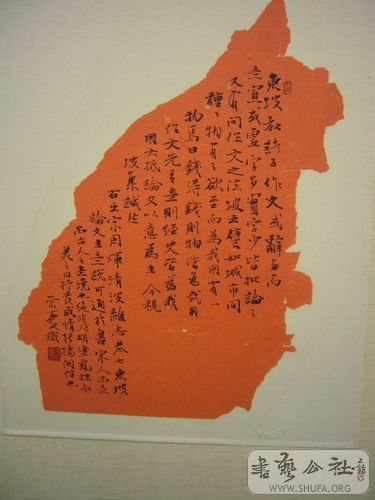 東坡教諸子作文或辭多而
意寡或虛字多實字少皆批諭之
又有問作文之法坡云譬如城市間
種種物有之欲至而為我用有一
物焉曰錢得錢則物皆為我用
作文先有意則經史皆為我
用大抵論文以意為主今視
坡集誠然
右出宋周煇清波雜志卷七東坡
論文主意說可通於書宋人尚意
尚古人之意境也絕非胡塗亂抹而
美其名曰抒發感情
書藝公社
WWW.SHUFA.ORG